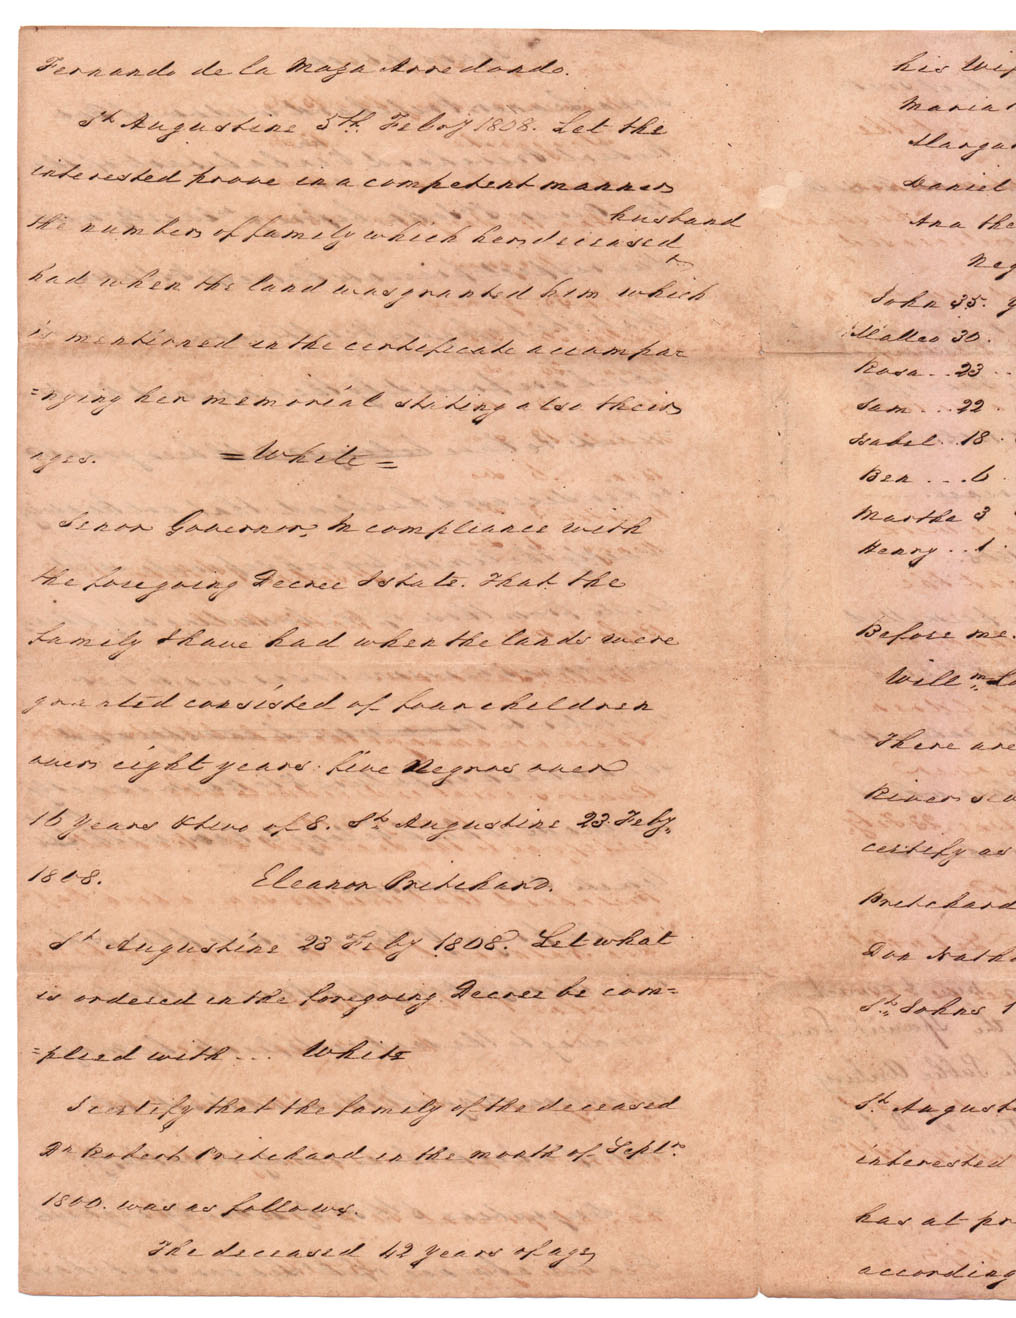 Fernando de la Maza Arredondo.
St Augustine 5th Feby 1808. Let the
interested prove in a competent manner
the number of family which her deceased husband
had when the land was granted him which
is mentioned in the certificate accompa=
=nying her memorial stating also their
ages. =White=
Senor Governor, In compliance with
the foregoing Decree I state. That the
family I have had when the lands were
granted consisted of four children
over eight years. five Negros over
16 years & two of 8. St Augustine 23 Feby.
1808. Eleanor Pritchard.
St Augustine 23 Feby 1808. Let what
is ordered in the foregoing Decree be com=
=plied with... White
I certify that the family of the deceased
Dn Robert Pritchard in the month of Septr.
1800. was as follows.
The deceased 42 years of age,
his Wif
Maria
Margar
Daniel
Ana the
Neg
John 35. y
Matteo 30.
Rosa .. 23 ..
Sam ... 22 .
Isabel .. 18 .
Ben ... 6 .
Martha 3
Henry .. 1 .
Before me.
Willm Lo
There are
River se
certify as
Pritchard
Don Natha
St. Johns 1
St. Augusti
interested
has at pr
according